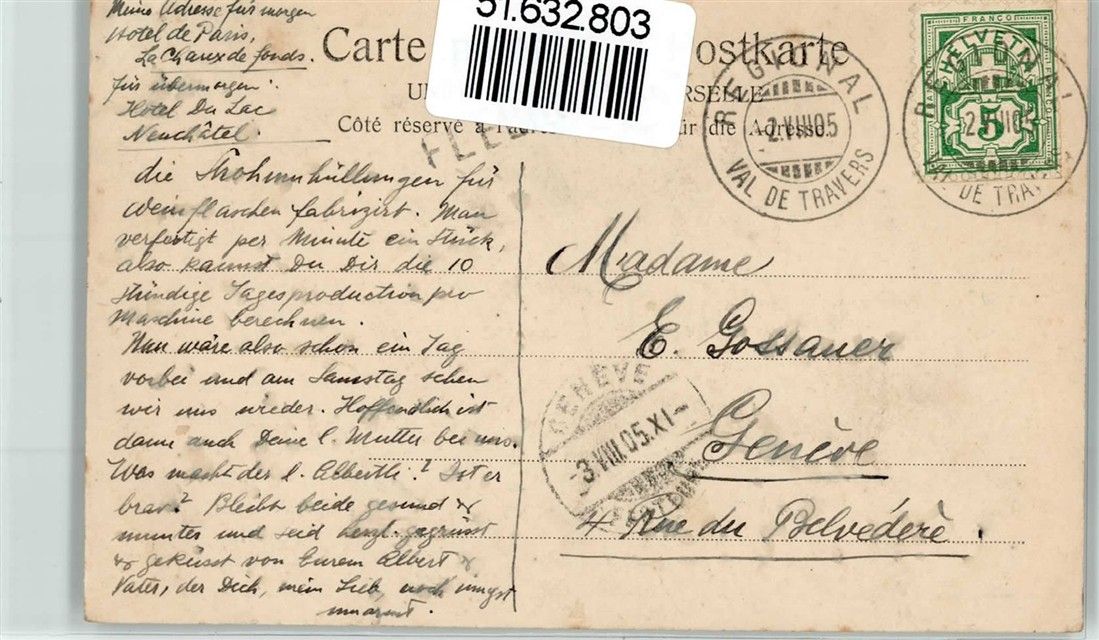 Meine Adresse für morgen
Hotel de Paris,
La Chaux de fonds.
für übermorgen:
Hotel Du Lac
Neuchâtel.
51.632.803
Carte ostkarte
U RSELLE
Côté réservé à für die Adresse.
FLEU
REGIONAL
-2.VIII.05
VAL DE TRAVERS
FRANCO
HELVETIA
5
REGIONAL
2.VIII.05
VAL DE TRA
die Strohumhüllungen für
Weinflaschen fabrizirt. Man
verfertigt per Minute ein Stück,
also kannst Du Dir die 10
stündige Tagesproduction pro
Maschine berechnen.
Nun wäre also schon ein Tag
vorbei und am Samstag sehen
wir uns wieder. Hoffendlich ist
dann auch Deine l. Mutter bei uns.
Was macht der l. Alberthli? Ist er
brav? Bleibt beide gesund &
munter und seid herzl. gegrüsst
& geküsst von Eurem Albert &
Vater, der Dich, mein Lieb, noch innigst
umarmt.
Madame
E. Gossauer
Genève
4 Rue du Belvédère.
GENÈVE
-3.VIII.05.XI-